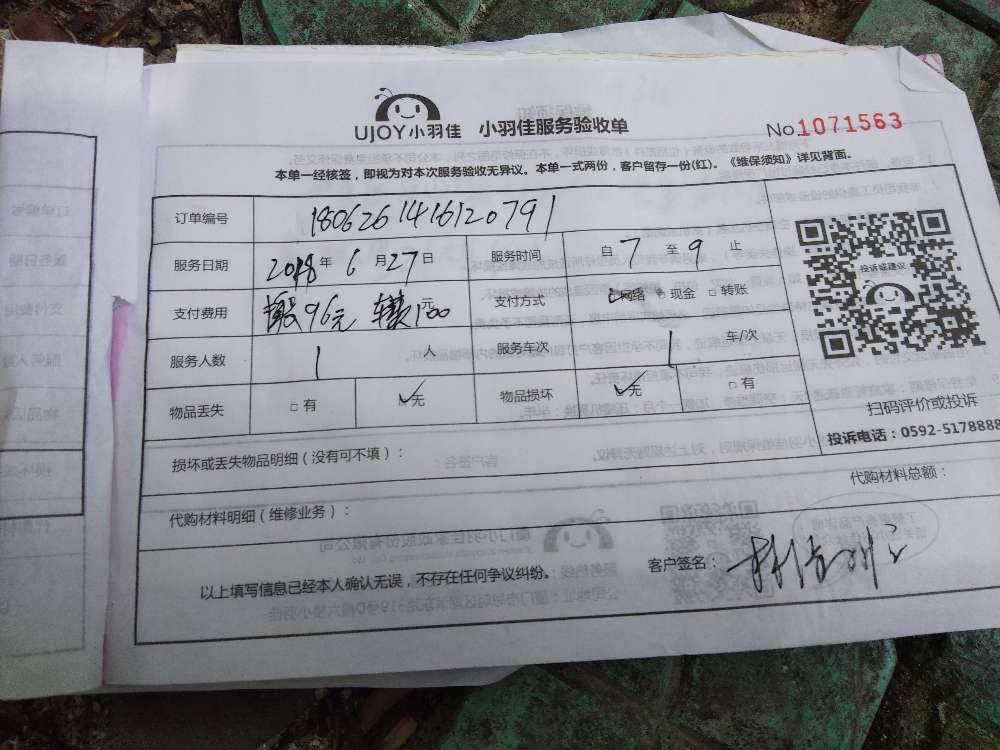 UJOY小羽佳 小羽佳服务验收单 No.1071563
本单一经核签，即视为对本次服务验收无异议。本单一式两份，客户留存一份(红)。《维保须知》详见背面。
订单编号 1806261416120791
服务日期 2018年6月27日 服务时间 自7至9止
支付费用 96元 100元 支付方式 网络 □现金 □转账
服务人数 1人 服务车次 1车/次
物品丢失 □有 ☑无 物品损坏 ☑无 □有
投诉或建议
扫码评价或投诉
投诉电话：0592-5178888
损坏或丢失物品明细（没有可不填）：
代购材料明细（维修业务）： 代购材料总额：
以上填写信息已经本人确认无误，不存在任何争议纠纷。 客户签名：